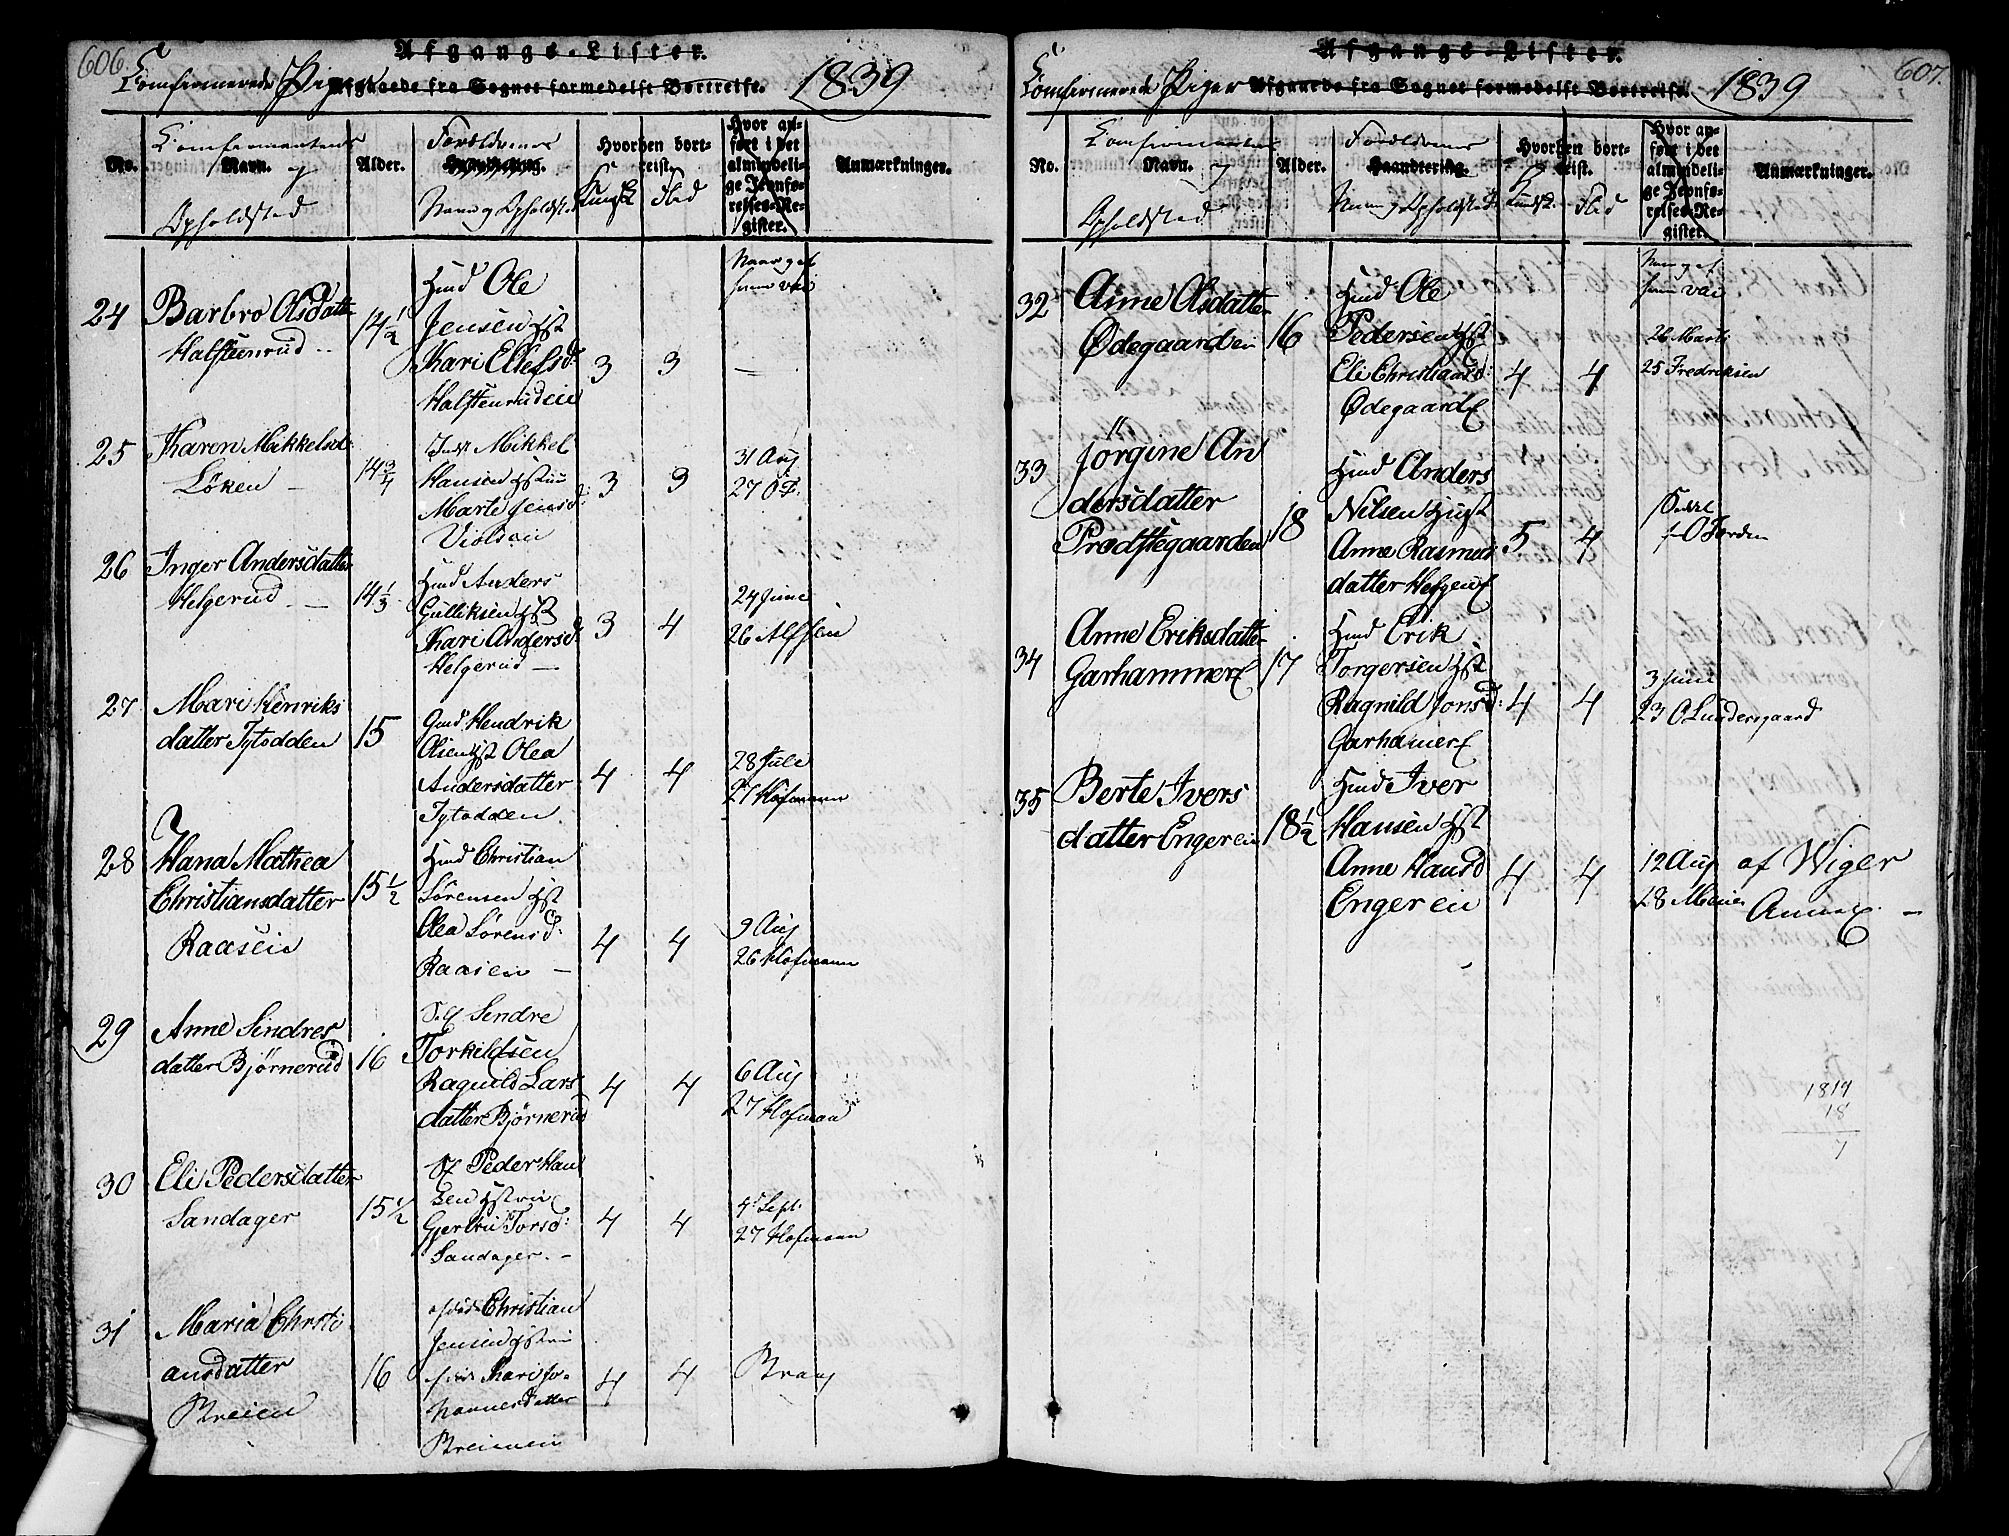 606.
Afgangs-Lister.
Confirmerede Piger Afgaaede fra Sognet formedelst Bortreise. 1839
No.
Confirmantens
Navn.
og
Opholdsted
Alder.
Forældrenes
Haandtering.
Navn og Opholdsted
Hvorhen bort-
reist.
Kundsk
Flid
Hvor an-
ført i det
almindeli-
ge Jevnfø-
relses-Re-
gister.
Anmærkninger.
Naar og af
hvem vac
24
Barbro Olsdatter
Halsteenrud
14 1/2
Huusmd Ole
Jensen Hst
Kari Ellefsd:
Halsteenrudeie
3
3
—
25
Karen Mikkelsd
Løken
14 3/4
Mikkel
Hansen Hst
Marte Jensd:
3
3
31 Aug
27
26
Inger Andersdatter
Helgerud
14 1/3
Huusmd Anders
Gulliksen Hst
Kari Andersd:
Helgerud —
3
4
24 June
26
27
Mari Henriks
datter Tytodden
15
Gmd Hendrik
Olsen Hst Olea
Andersdatter
Tytodden
4
4
28 Jule
27 Hofmann
28
Hana Mathea
Christiansdatter
Raaseie
15 1/2
Huusmd Christian
Sørensen Hst
Olea Sørensd:
Raaseie —
4
4
9 Aug
26 Hofmann
29
Anne Sindres
datter Bjørnerud
16
Sindre
Torkildsen
Ragnild Lars
datter Bjørnerud
4
4
6 Aug
27 Hofman
30
Eli Pedersdatter
Sandager
15 1/2
Peder Han
sen Hst
Gjertru Torsd:
Sandager. —
4
4
Sept:
27 Hofmann
31
Maria Christi
ansdatter
Breien
16
Christian
Jensen Hst
Kari Jo-
hannesdatter
Breieneie
4
4
607.
Afgangs-Lister.
Confirmerede Piger Afgaaede fra Sognet formedelst Bortreise. 1839
No.
Confirmantens
Navn.
og
Opholdsted
Alder.
Forældrenes
Haandtering.
Navn og Opholdsted
Hvorhen bort-
reist.
Kundsk.
Flid
Hvor an-
ført i det
almindeli-
ge Jevnfø-
relses-Re-
gister.
Anmærkninger.
Naar og af
hvem vac
32
Anne Olsdatter
Ødegaardeie
16
Huusmd Ole
Pedersen Hst
Eli Christiansd:
Ødegaard
4
4
26 Marti
25 Fredriksen
33
Jørgine An
dersdatter
Prodstegaarden
18
Huusmd Anders
Nilsen Hust
Anne Rasmus
datter Helgeru
5
4
34
Anne Eriksdatter
Garhammer
17
Huusmd Erik
Torgersen Hst
Ragnild Jonsd:
Garhamer
4
4
3 Juni
23 O Lundersgaard
35
Berte Ivers
datter Engereie
18 1/2
Huusmd Iver
Hansen Hst
Anne Hansd
Engereie
4
4
12 Aug
28
af Wiger
Annex. —
1819
18